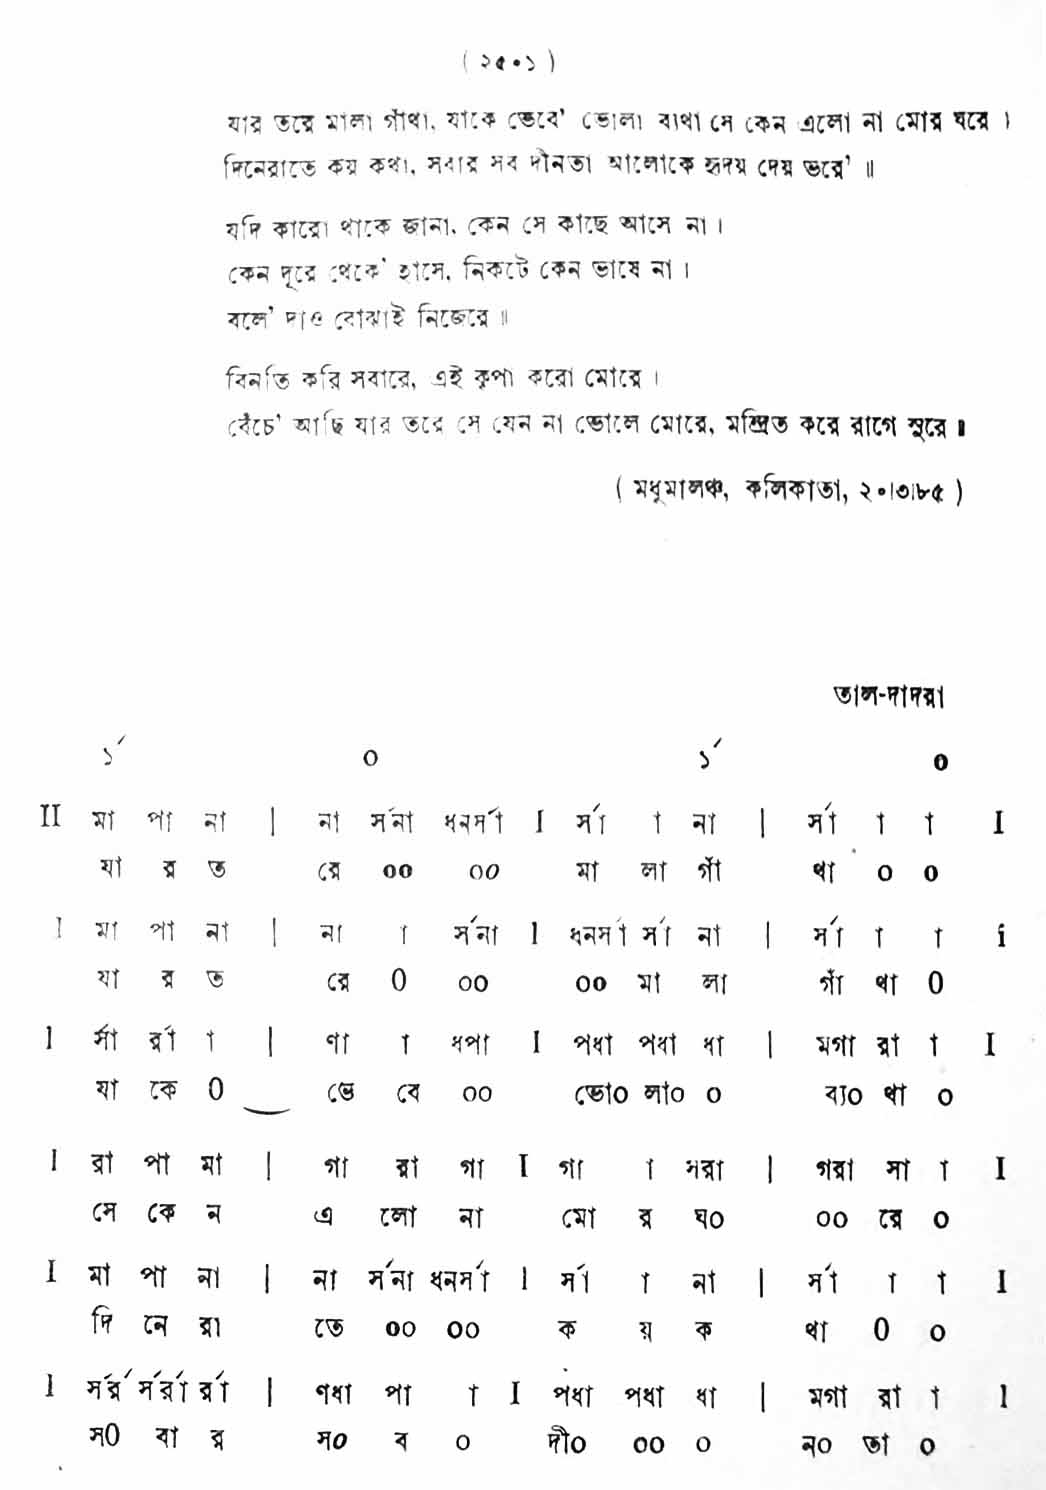 ( ২৫০১ )
যার তরে মালা গাঁথা, যাকে ভেবে' ভোলা ব্যথা সে কেন এলো না মোর ঘরে ।
দিনেরাতে কয় কথা, সবার সব দীনতা আলোকে হৃদয় দেয় ভরে' ॥
যদি কারো থাকে জানা, কেন সে কাছে আসে না ।
কেন দূরে থেকে' হাসে, নিকটে কেন ভাষে না ।
বলে' দাও বোঝাই নিজেরে ॥
বিনতি করি সবারে, এই কৃপা করো মোরে ।
বেঁচে' আছি যার তরে সে যেন না ভোলে মোরে, মন্দ্রিত করে রাগে সুরে ॥
( মধুমালঞ্চ, কলিকাতা, ২০।৩।৮৫ )
তাল-দাদরা
১´ ০ ১´ ০
II মা পা না | না র্সনা ধনর্সা I র্সা া না | র্সা া া I
যা র ত রে ০০ ০০ মা লা গাঁ থা ০ ০
I মা পা না | না া র্সনা I ধনর্সা র্সা না | র্সা া া I
যা র ত রে ০ ০০ ০০ মা লা গাঁ থা ০
I র্সা র্রা া | ণা া ধপা I পধা পধা ধা | মগা রা া I
যা কে ০ ভে বে ০০ ভো০ লা০ ০ ব্য০ থা ০
I রা পা মা | গা রা গা I গা া সরা | গরা সা া I
সে কে ন এ লো না মো র ঘ০ ০০ রে ০
I মা পা না | না র্সনা ধনর্সা I র্সা া না | র্সা া া I
দি নে রা তে ০০ ০০ ক য় ক থা ০ ০
I র্সর্র র্সর্রা র্রা | ণধা পা া I পধা পধা ধা | মগা রা া I
স০ বা র স০ ব ০ দী০ ০০ ০ ন০ তা ০